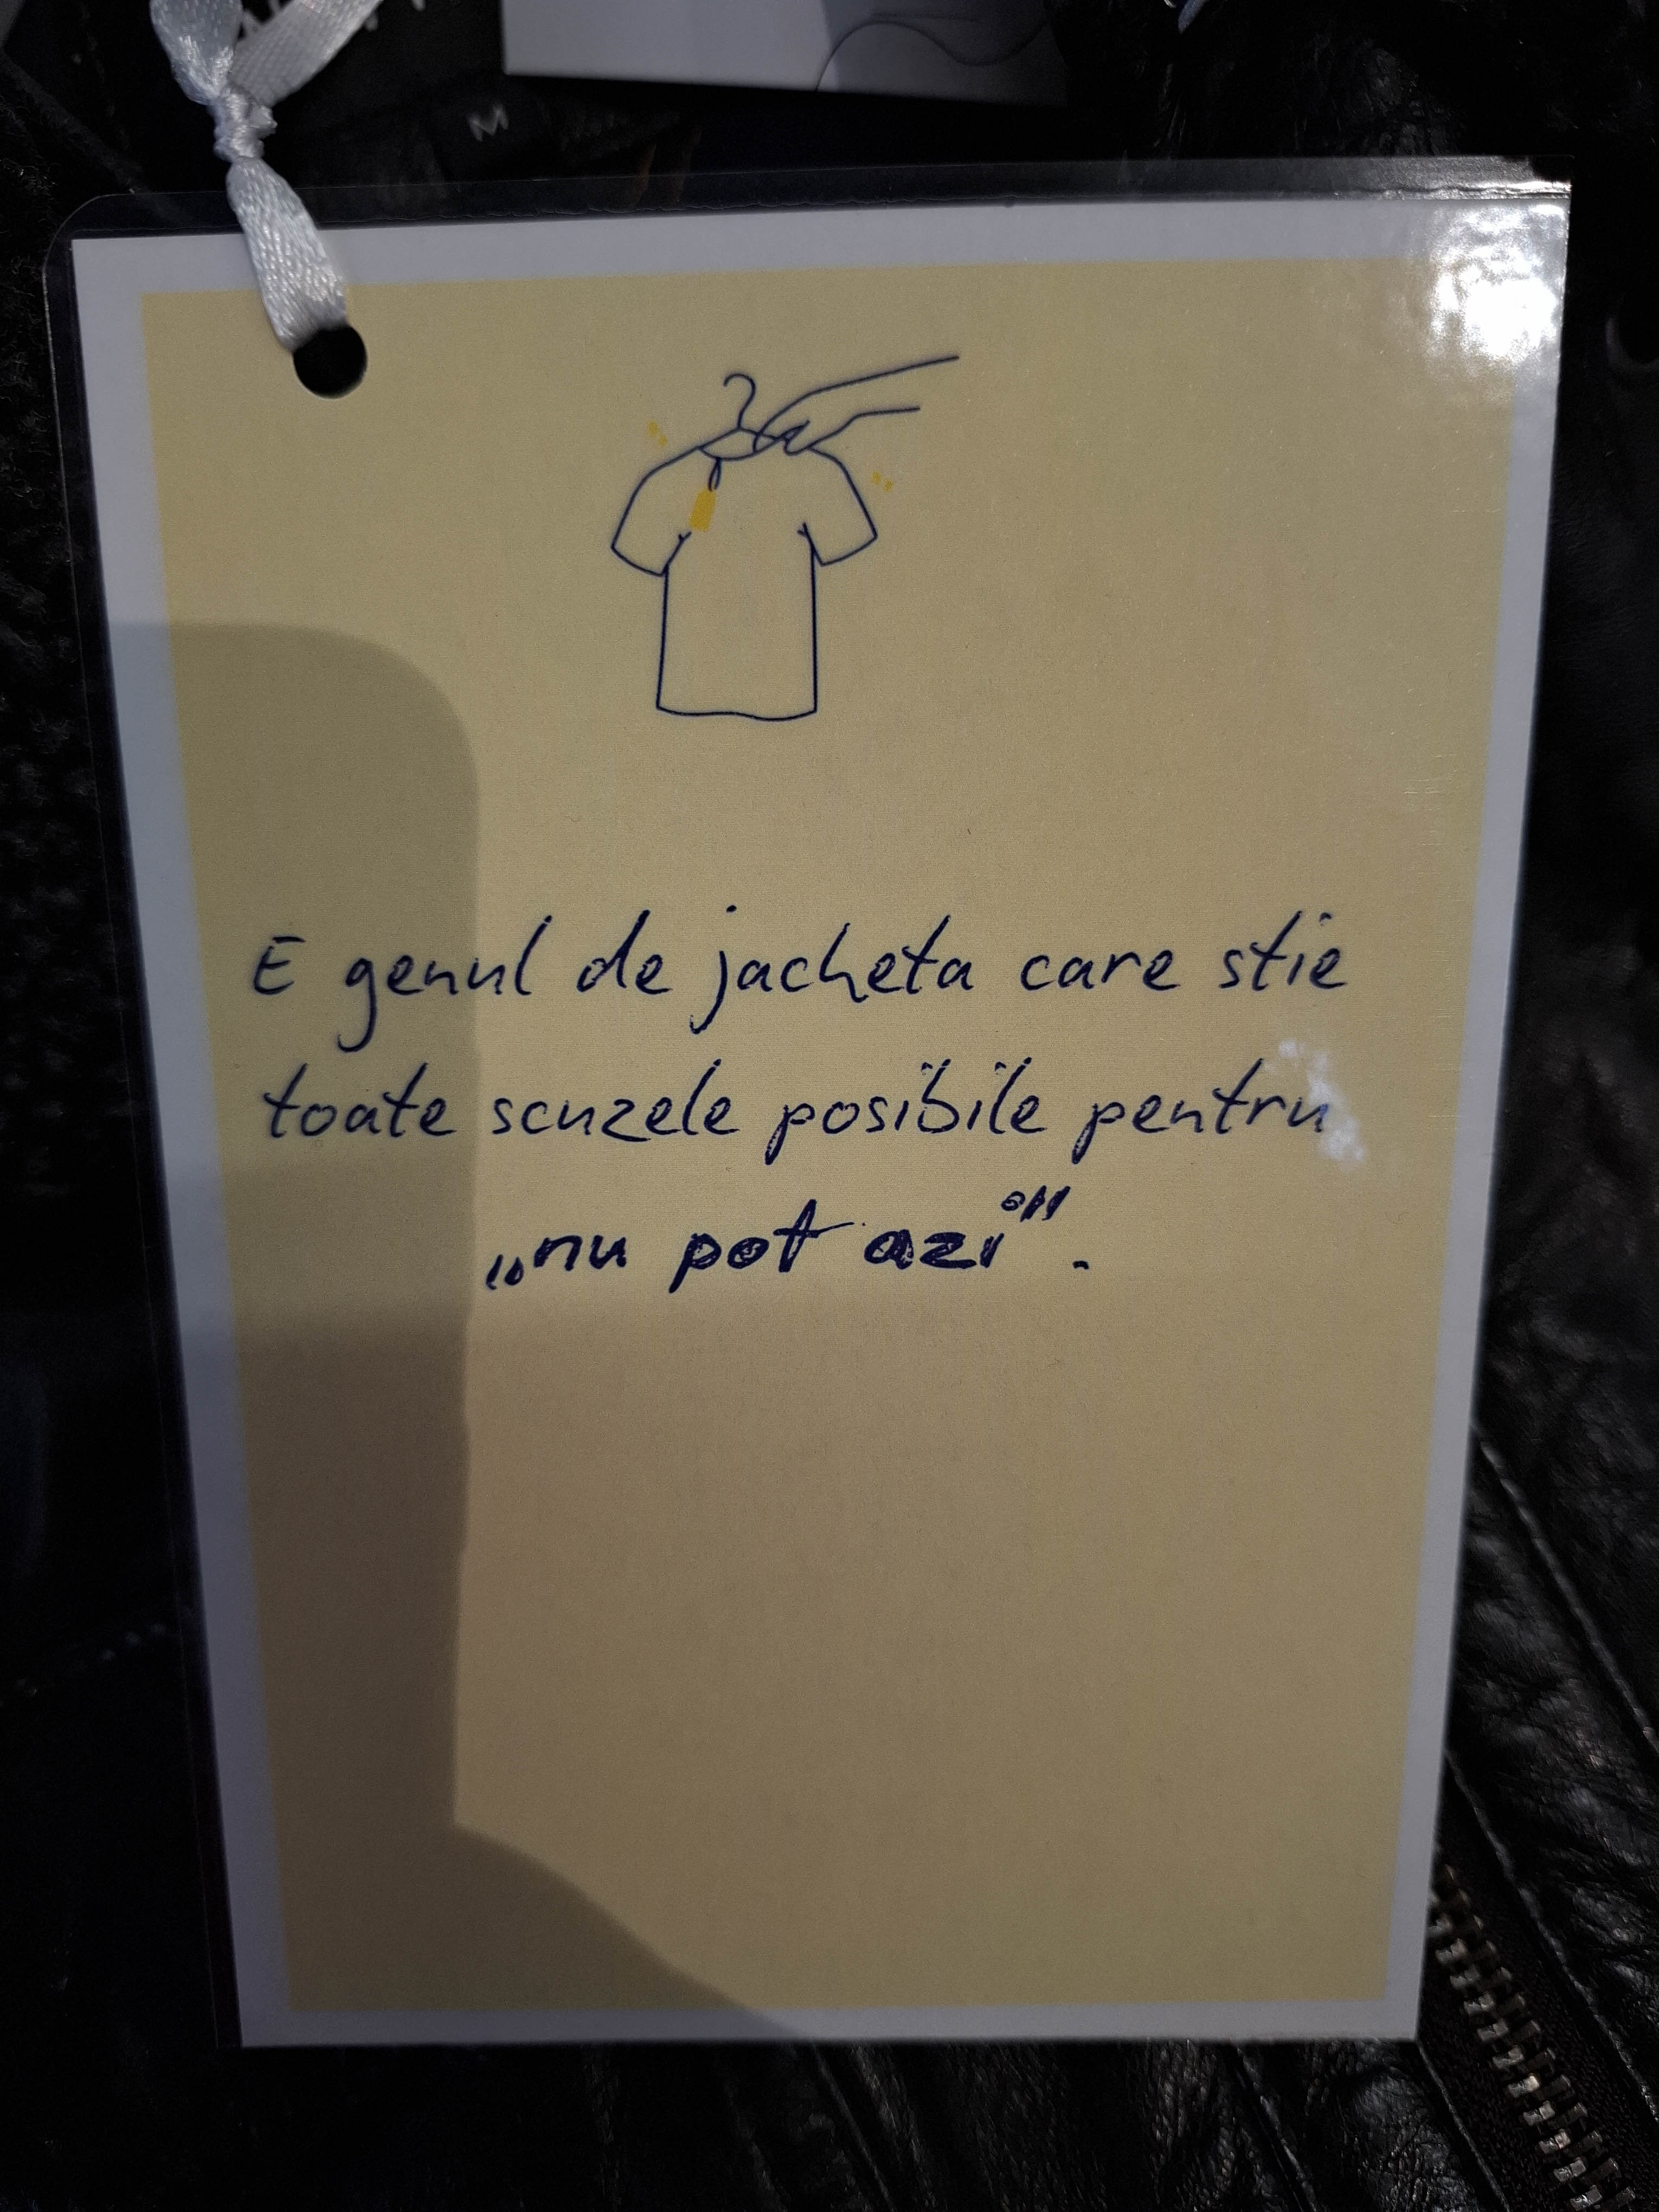 M
E genul de jacheta care stie
toate scuzele posibile pentru
„nu pot azi”.